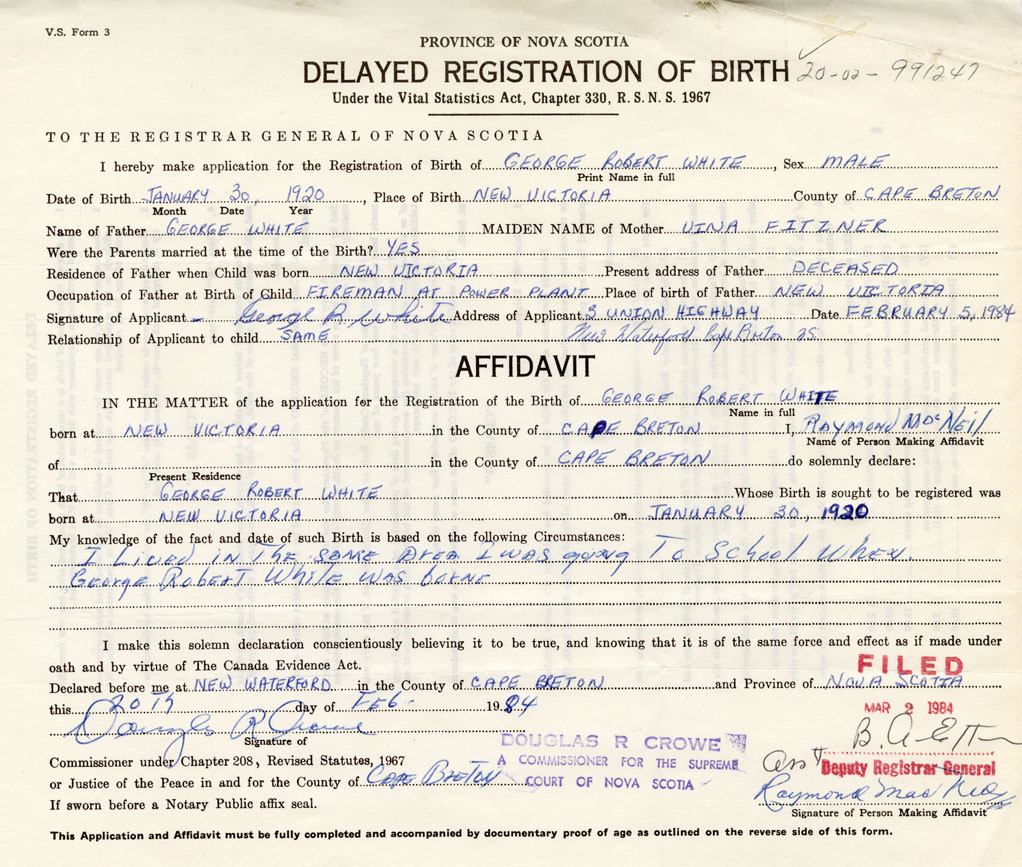 V.S. Form 3
PROVINCE OF NOVA SCOTIA
DELAYED REGISTRATION OF BIRTH 20-02-991247
Under the Vital Statistics Act, Chapter 330, R.S.N.S. 1967
TO THE REGISTRAR GENERAL OF NOVA SCOTIA
I hereby make application for the Registration of Birth of GEORGE ROBERT WHITE, Sex MALE
Print Name in full
Date of Birth JANUARY 30, 1920, Place of Birth NEW VICTORIA County of CAPE BRETON
Month Date Year
Name of Father GEORGE WHITE MAIDEN NAME of Mother VINA FITZNER
Were the Parents married at the time of the Birth? YES
Residence of Father when Child was born NEW VICTORIA Present address of Father DECEASED
Occupation of Father at Birth of Child FIREMAN AT POWER PLANT Place of birth of Father NEW VICTORIA
Signature of Applicant - George R White Address of Applicant 3 UNION HIGHWAY Date FEBRUARY 5, 1984
Relationship of Applicant to child SAME New Waterford Cape Breton NS.
AFFIDAVIT
IN THE MATTER of the application for the Registration of the Birth of GEORGE ROBERT WHITE
Name in full
born at NEW VICTORIA in the County of CAPE BRETON I, RAYMOND McNeil
Name of Person Making Affidavit
of in the County of CAPE BRETON do solemnly declare:
Present Residence
That GEORGE ROBERT WHITE Whose Birth is sought to be registered was
born at NEW VICTORIA on JANUARY 30, 1920
My knowledge of the fact and date of such Birth is based on the following Circumstances:
I LIVED IN THE SAME AREA I WAS going To School When
George Robert White WAS borne
I make this solemn declaration conscientiously believing it to be true, and knowing that it is of the same force and effect as if made under
oath and by virtue of The Canada Evidence Act.
FILED
Declared before me at NEW WATERFORD in the County of CAPE BRETON and Province of NOVA SCOTIA
this 20th day of FEB- 1984
MAR 2 1984
Douglas R Crowe
Signature of
DOUGLAS R CROWE
Commissioner under Chapter 208, Revised Statutes, 1967
A COMMISSIONER FOR THE SUPREME
Asst Deputy Registrar General
or Justice of the Peace in and for the County of Cape Breton
COURT OF NOVA SCOTIA
Raymond Mac Neil
Signature of Person Making Affidavit
If sworn before a Notary Public affix seal.
This Application and Affidavit must be fully completed and accompanied by documentary proof of age as outlined on the reverse side of this form.